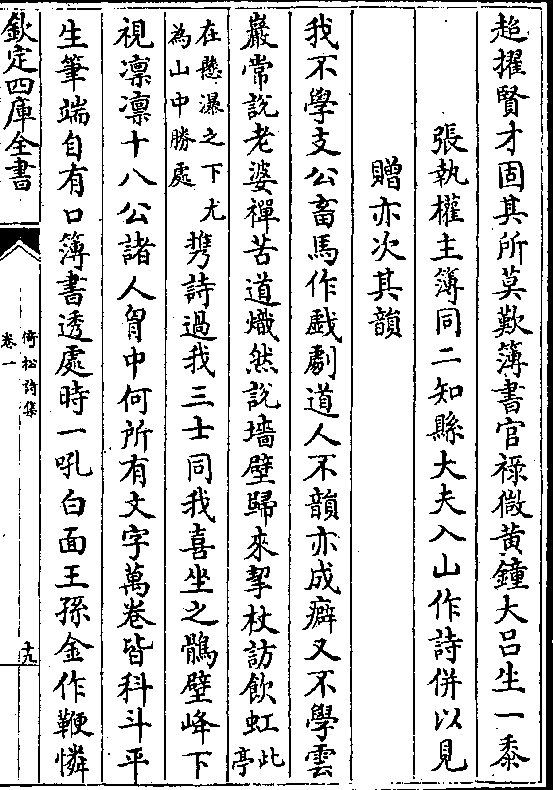 超擢賢才固其所莫歎簿書官祿微黃鐘大吕生一黍
張執權主簿同二知縣大夫入山作詩併以見
贈亦次其韻
我不學支公畜馬作戲劇道人不韻亦成癖又不學雲
巖常說老婆禪苦道熾然說墻壁歸來挈杖訪飲虹此亭
在懸瀑之下尤為山中勝處㩦詩過我三士同我喜坐之鶻壁峰下
視凛凛十八公諸人胷中何所有文字萬卷皆科斗平
生筆端自有口簿書透處時一吼白面王孫金作鞭憐
欽定四庫全書
倚松詩集
卷一
十九